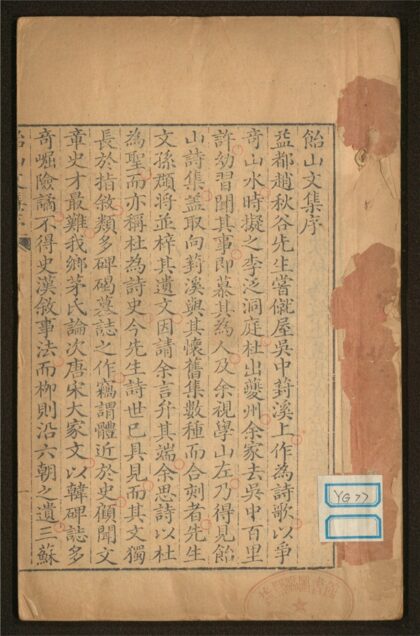 飴山文集序
益都趙秋谷先生嘗僦屋吳中葑溪上作為詩歌以爭
奇山水時擬之李泛洞庭杜出夔州余家去吳中百里
許幼習聞其事即慕其為人及余視學山左乃得見飴
山詩集蓋取向葑溪與其懷舊集數種而合刻者先生
文孫頫將並梓其遺文因請余言弁其端余思詩以杜
為聖而亦稱杜為詩史今先生詩世已具見而其文獨
長於指敘類多碑碣墓誌之作竊謂體近於史顧聞文
章史才最難我鄉茅氏論次唐宋大家文以韓碑誌多
奇崛險譎不得史漢敘事法而柳則沿六朝之遺三蘇
飴山文集序
YG77